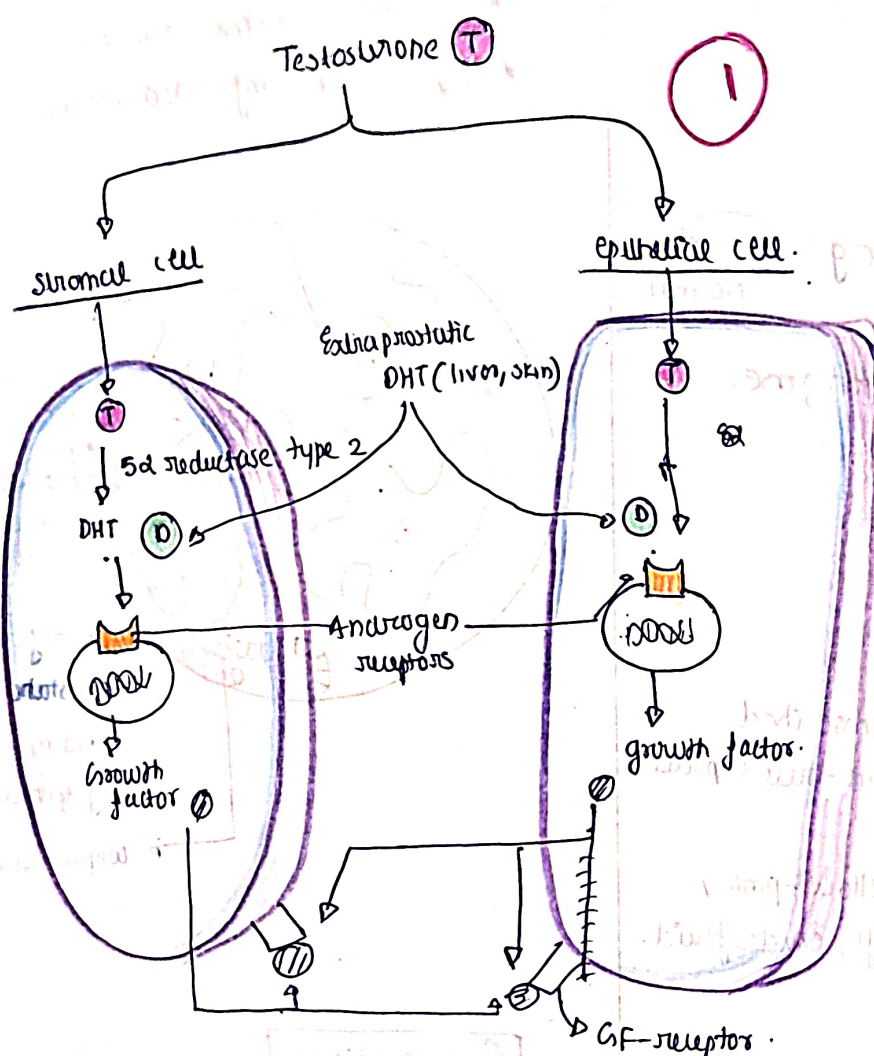 Testosterone T
1
stromal cell
epithelial cell.
Extraprostatic
DHT (liver, skin)
T
T
5α reductase type 2
DHT D
D
Androgen
receptors
Growth
factor
growth factor.
GF-receptor.